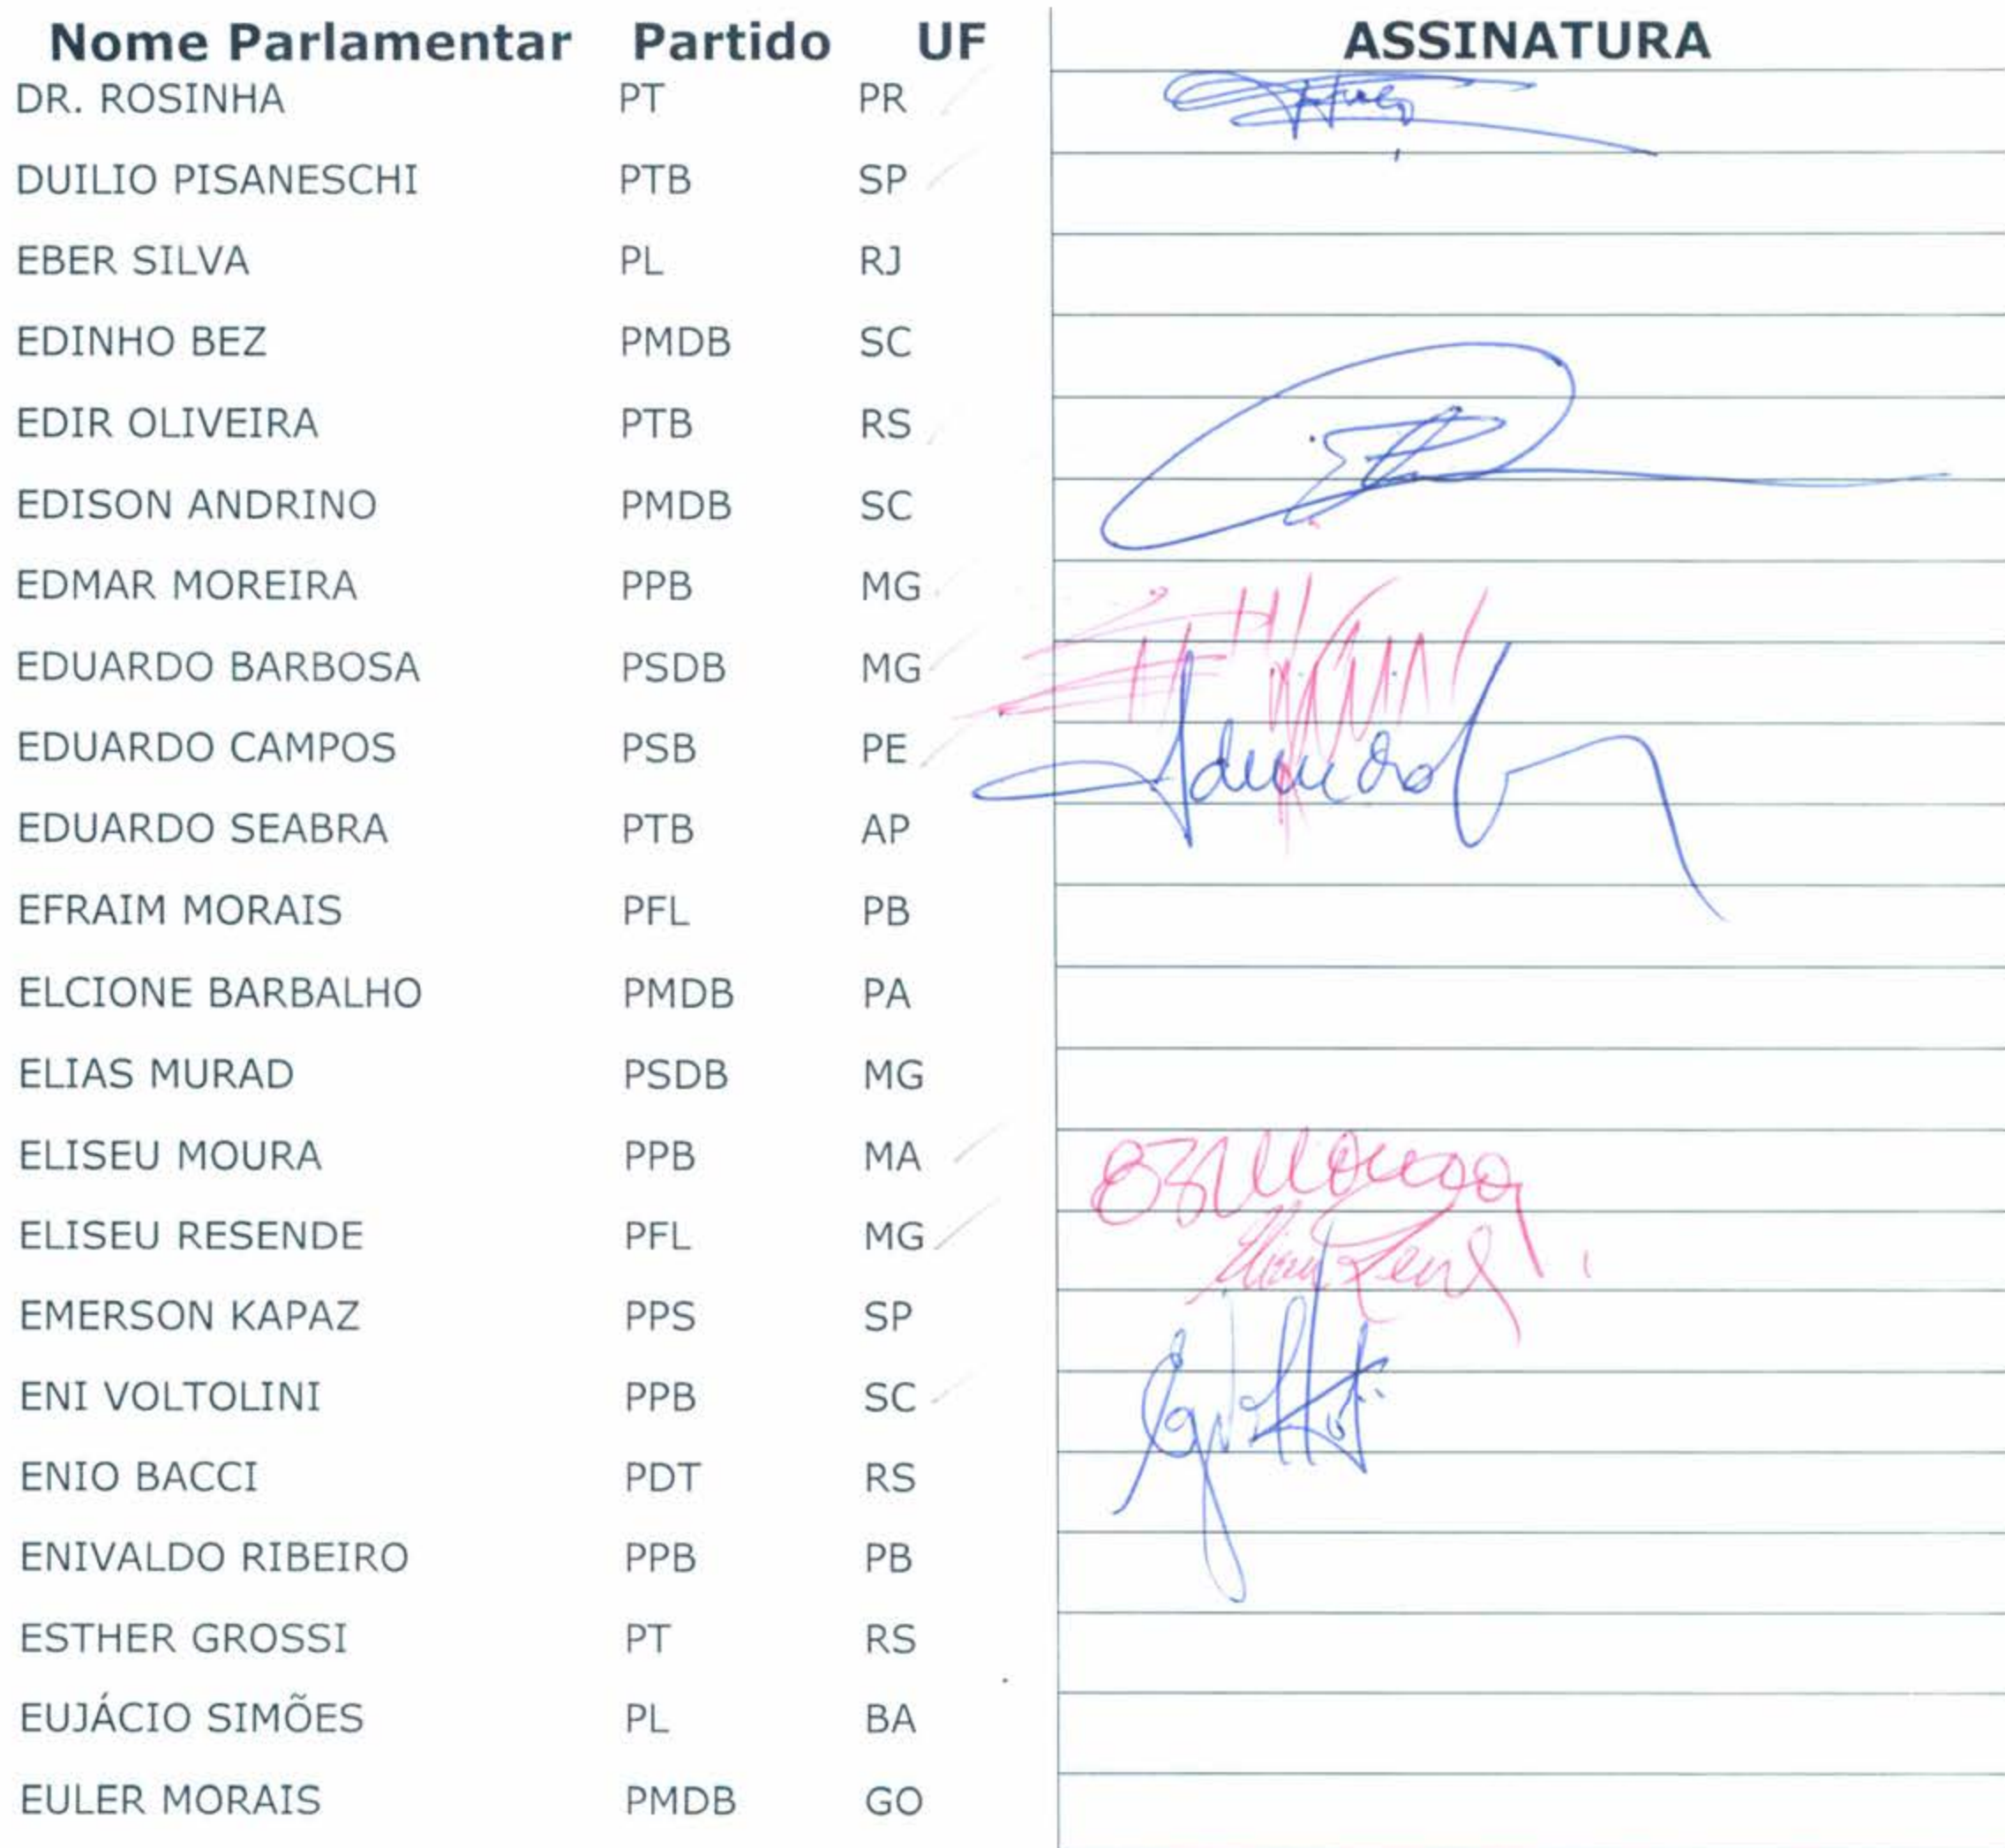 Nome Parlamentar Partido UF ASSINATURA
DR. ROSINHA PT PR
DUILIO PISANESCHI PTB SP
EBER SILVA PL RJ
EDINHO BEZ PMDB SC
EDIR OLIVEIRA PTB RS
EDISON ANDRINO PMDB SC
EDMAR MOREIRA PPB MG
EDUARDO BARBOSA PSDB MG
EDUARDO CAMPOS PSB PE
EDUARDO SEABRA PTB AP
EFRAIM MORAIS PFL PB
ELCIONE BARBALHO PMDB PA
ELIAS MURAD PSDB MG
ELISEU MOURA PPB MA
ELISEU RESENDE PFL MG
EMERSON KAPAZ PPS SP
ENI VOLTOLINI PPB SC
ENIO BACCI PDT RS
ENIVALDO RIBEIRO PPB PB
ESTHER GROSSI PT RS
EUJÁCIO SIMÕES PL BA
EULER MORAIS PMDB GO